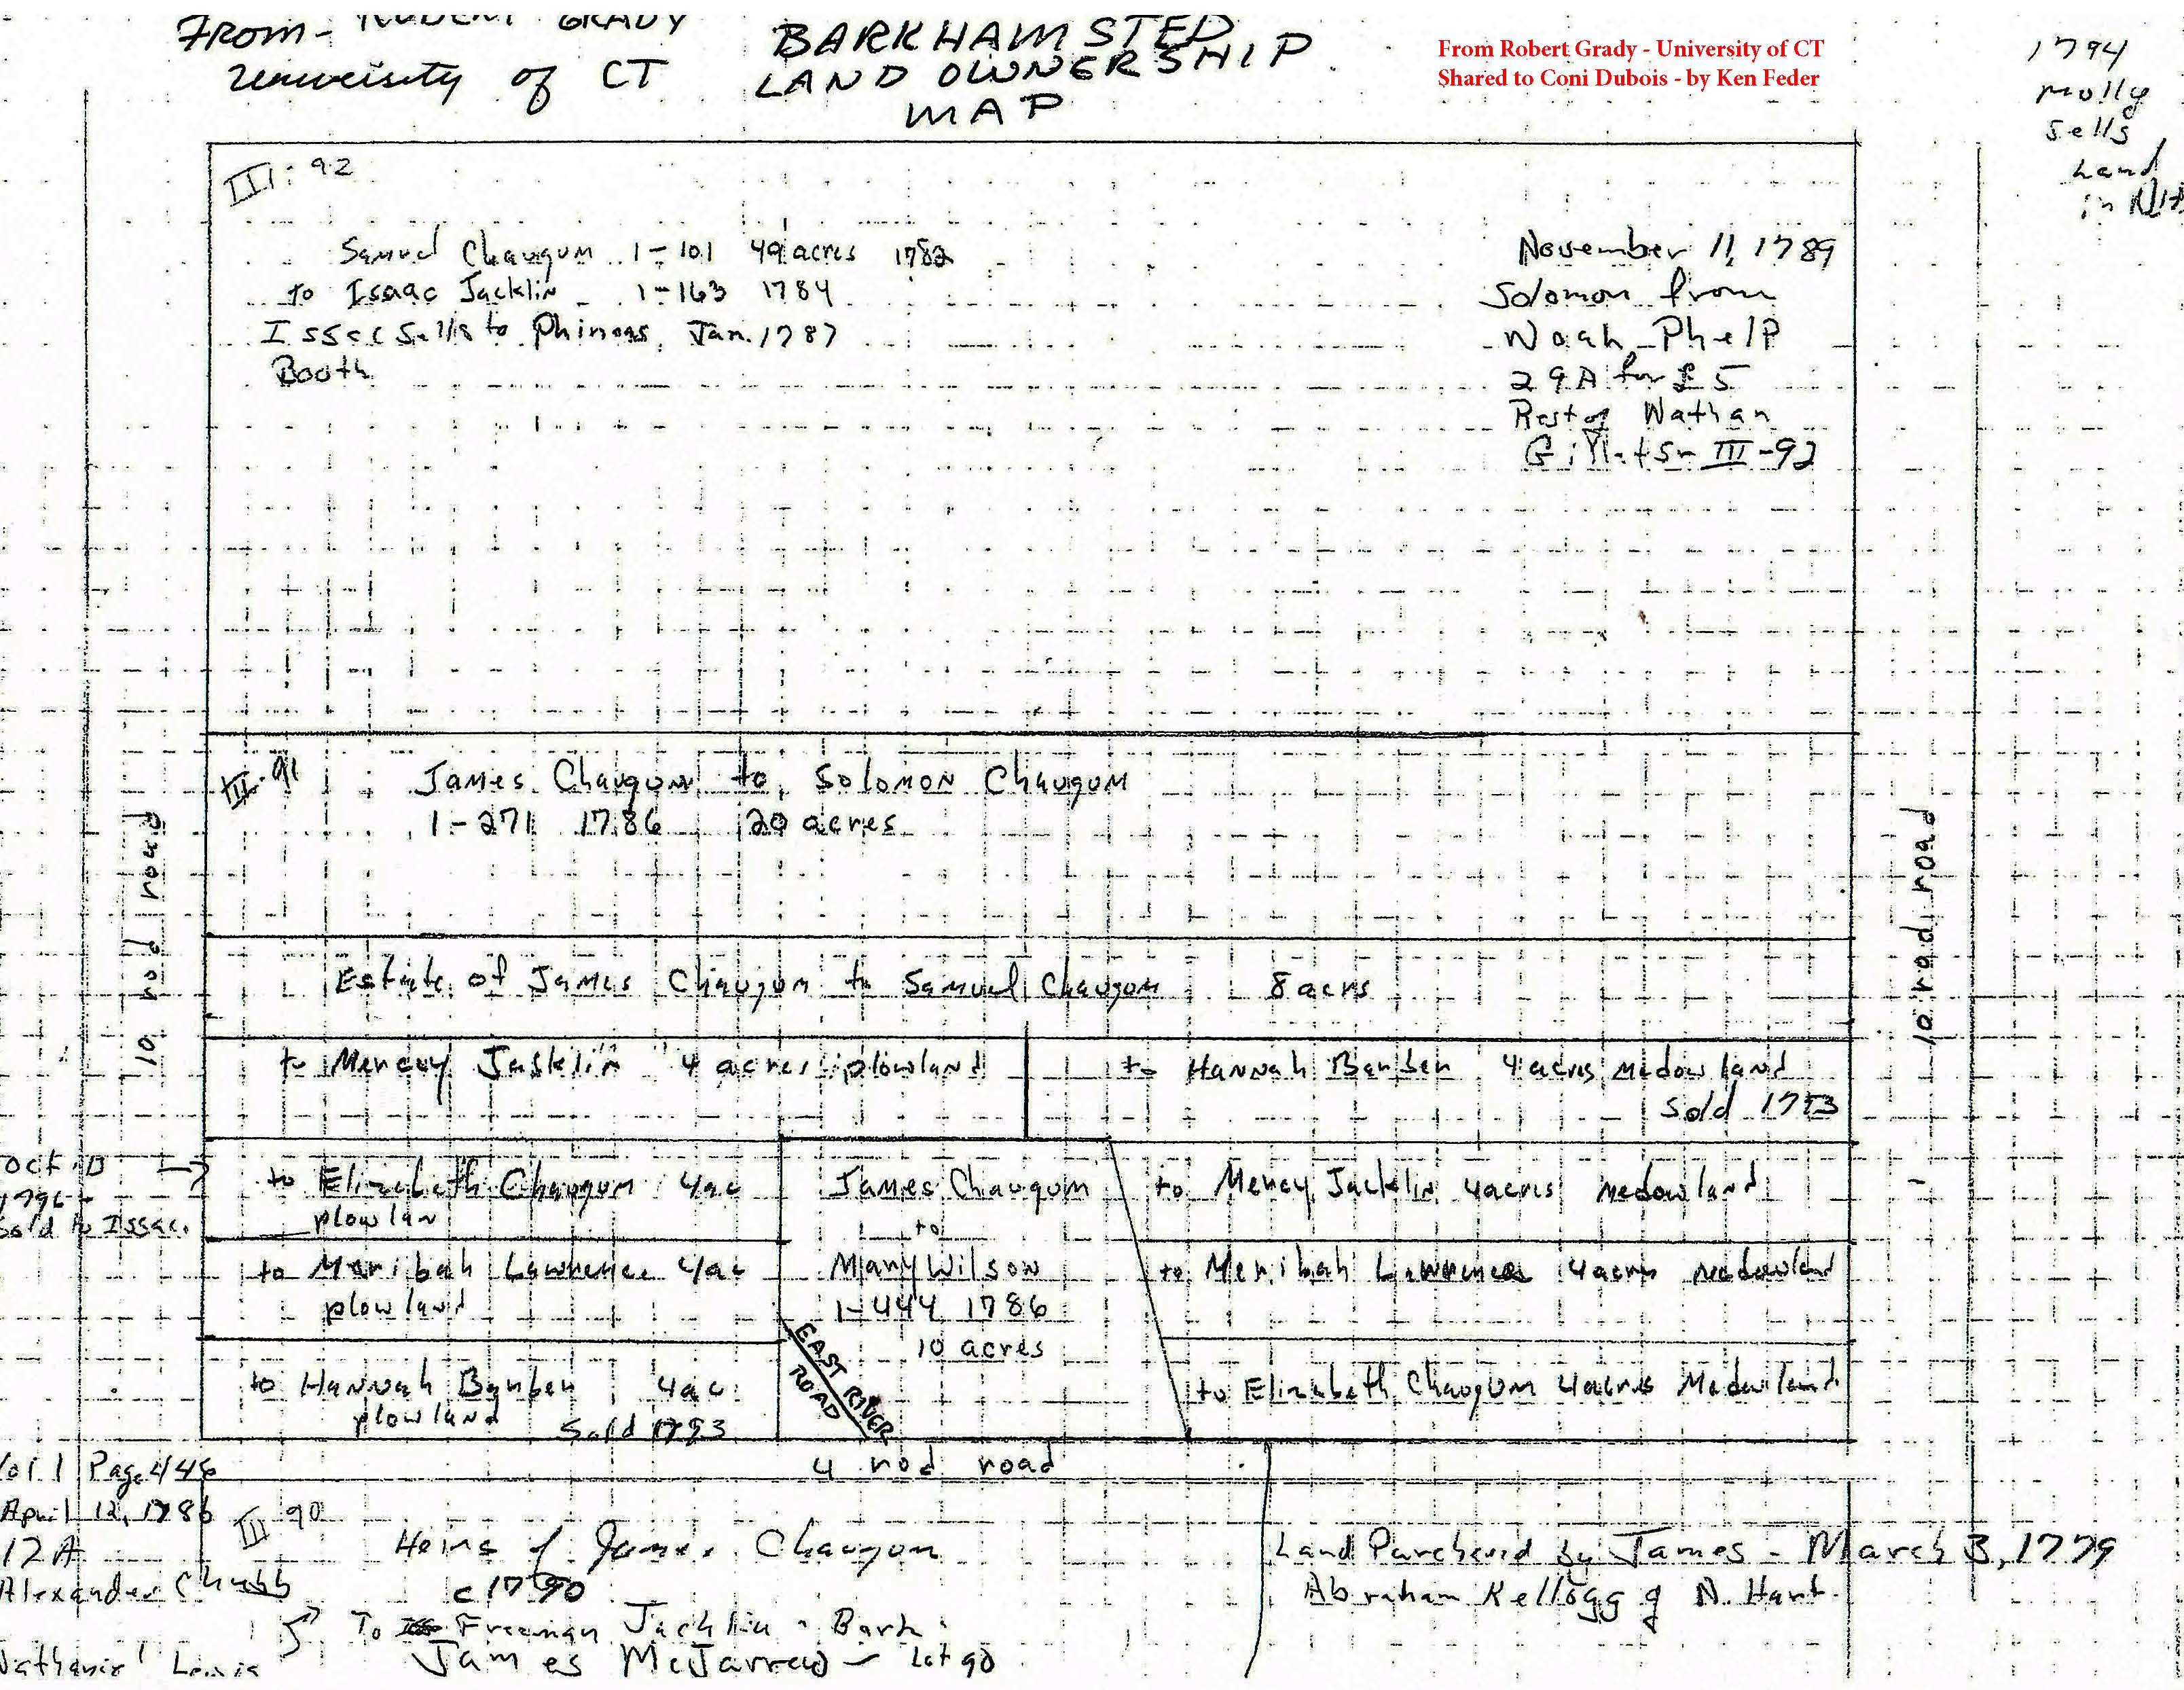 From - ROBERT GRADY
University of CT
BARKHAMSTED
LAND OWNERSHIP
MAP
From Robert Grady - University of CT
Shared to Coni Dubois - by Ken Feder
1794
Molly
sells
Land
in
III: 92
Samuel Chaugum 1-101 49 acres 1782
to Isaac Jacklin 1-163 1784
Issac Sells to Phineas Jan. 1787
Booth
November 11, 1789
Solomon from
Noah Phelp
29A for £5
Rest of Nathan
III-92
III-91
James Chaugum to Solomon Chaugum
1-271 1786 20 acres
10 rod road
10 rod road
Estate of James Chaugum to Samuel Chaugum 8 acrs
to Mercey Jasklin 4 acres plowland
to Hannah Barber 4 acres Medow land
Sold
to Elizabeth Chaugum 4ac
plow lan
James Chaugum
to
Mary Wilson
1-444 1786
10 acres
to Mercy Jacklin 4 acres medowland
to Meribah Lawrence 4ac
plowland
to Meribah Lawrence 4 acres medowland
to Hannah Barber 4ac
plowland
Sold
to Elizabeth Chaugum 4 acres Medowland
EAST RIVER
ROAD
4 rod road
Oct.
1796
Sold to Issac.
Vol 1 Page 446
April 12, 1786
12A
Alexander Chubb
Nathaniel Lewis
III 90
Heirs of James Chaugum
c 1790
To Freeman Jacklin - Bark.
James McJarrow - Lot 90
Land Purchesed by James - March 3, 1779
Abraham Kellogg of N. Hart.